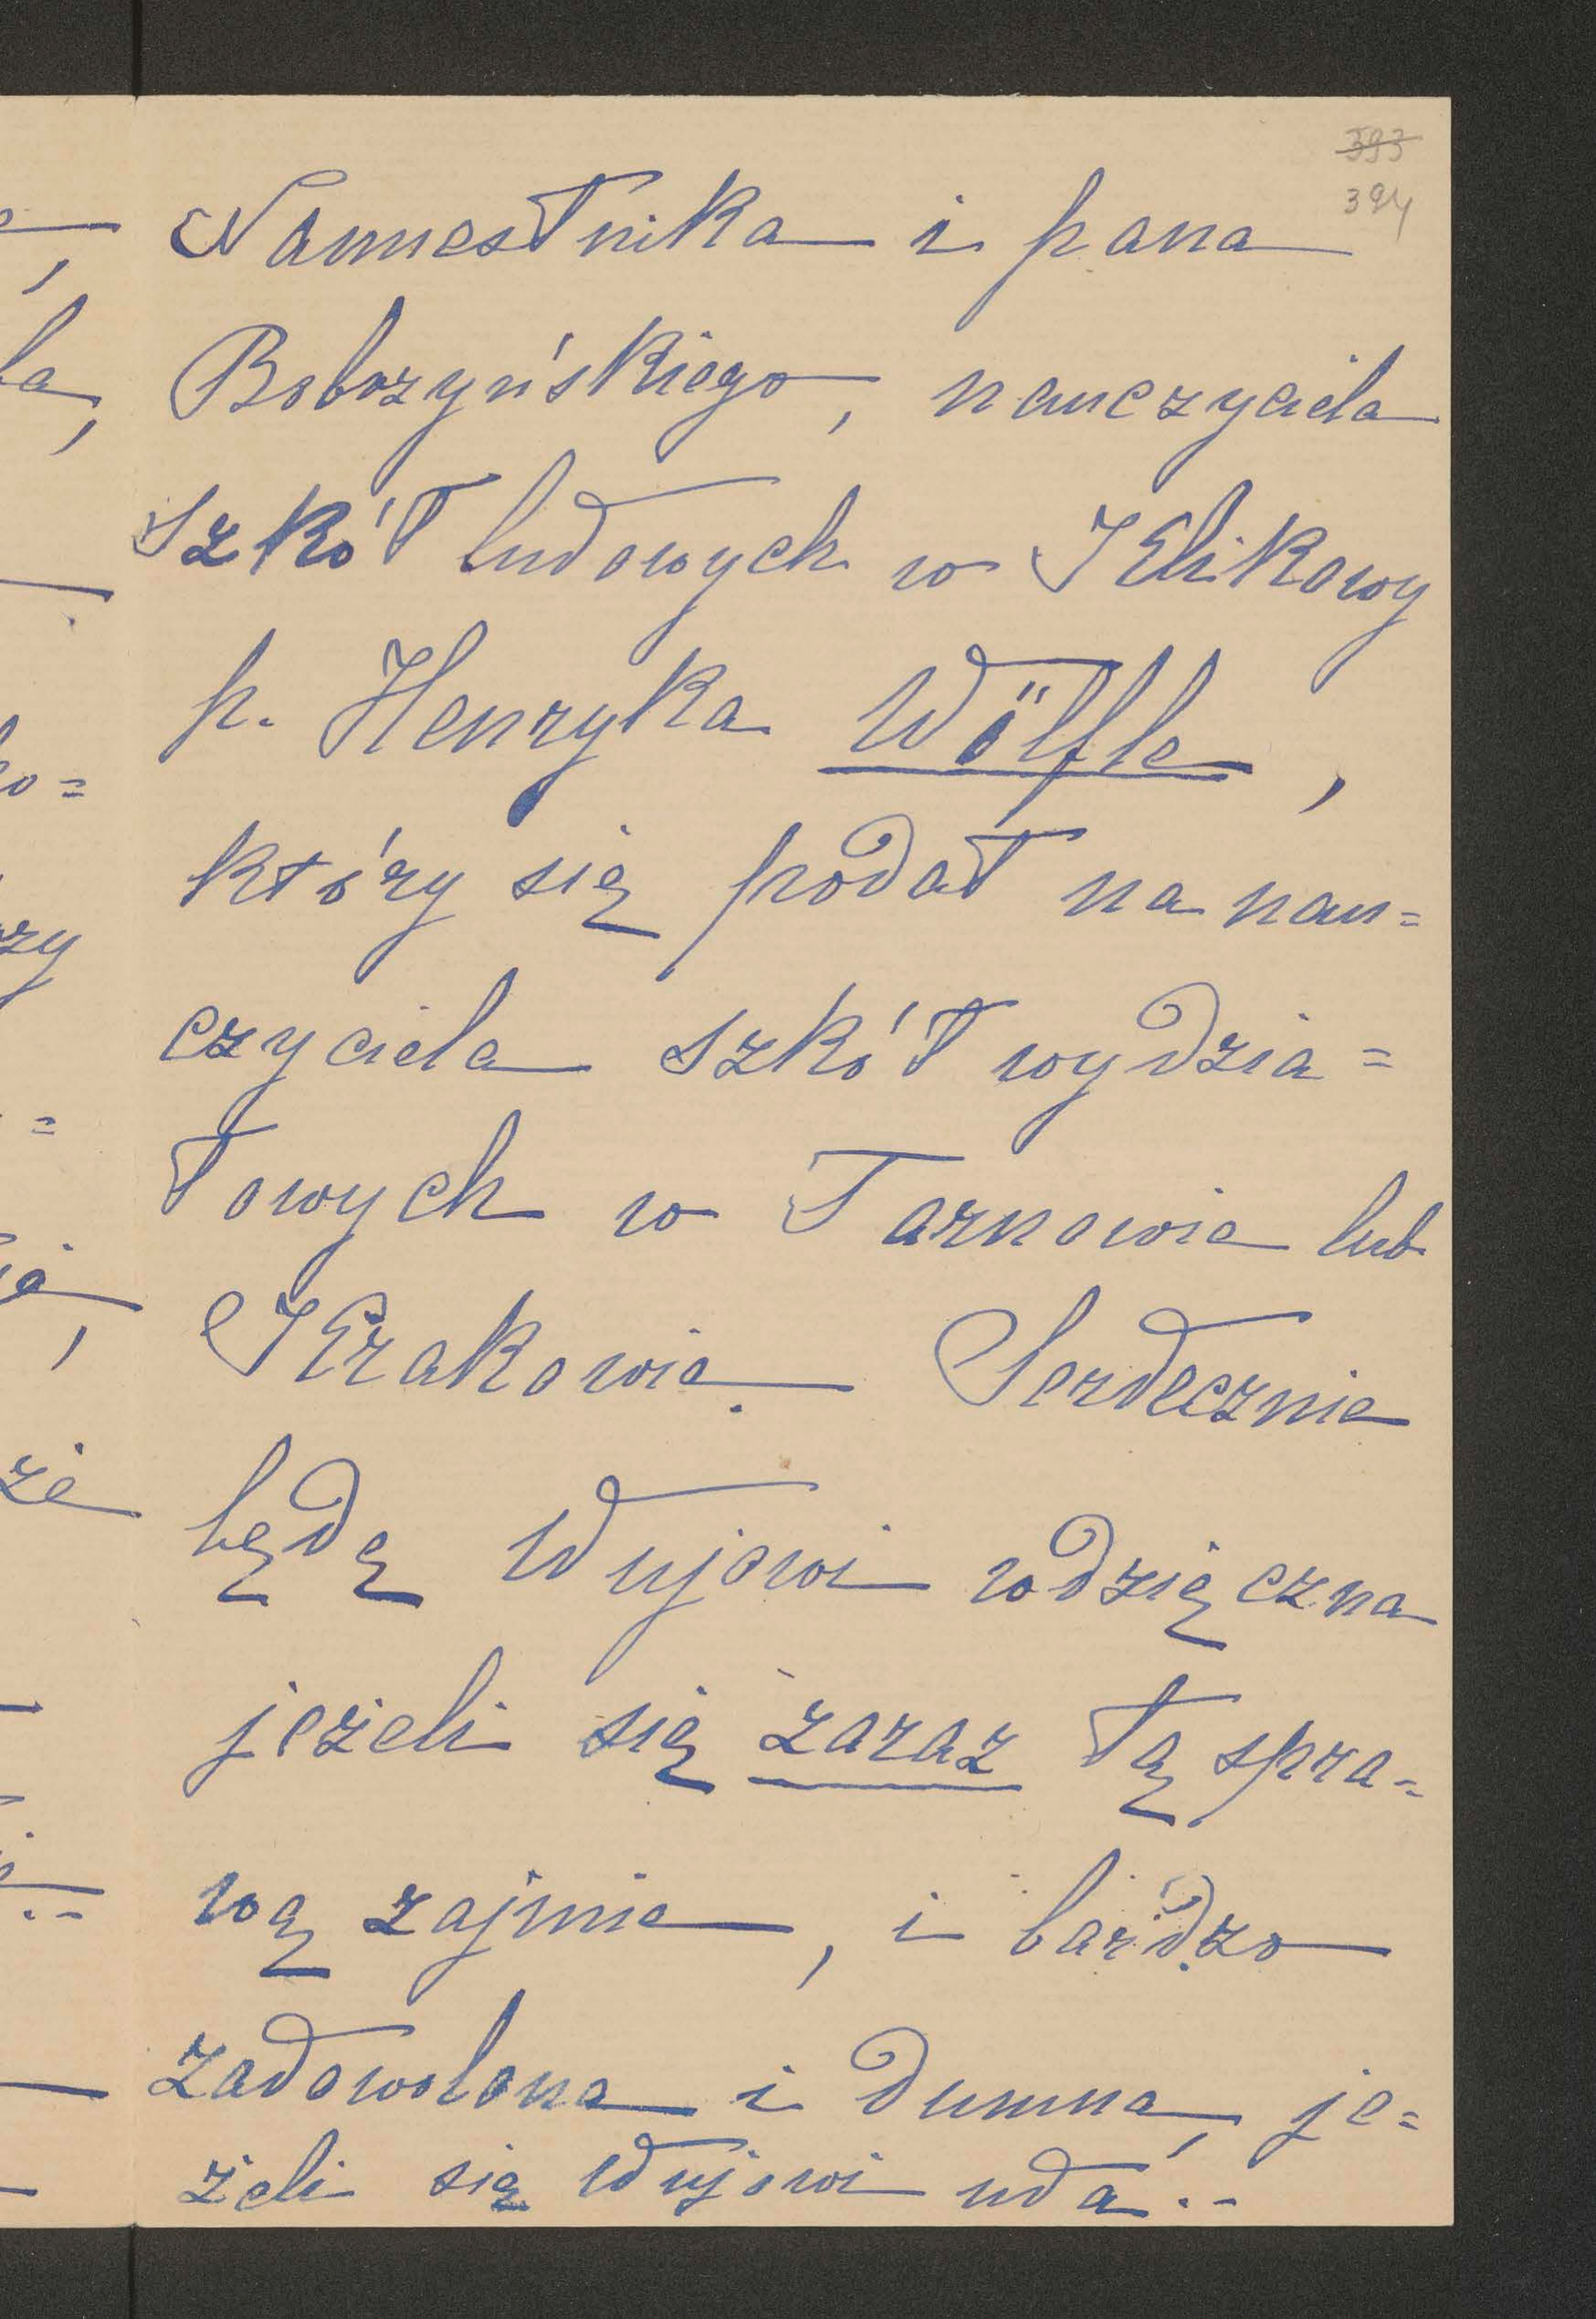 393
394
Namiestnika i pana
Bobrzyńskiego, nauczyciela
szkół ludowych w Klikowy
p. Henryka Wölfle,
który się podał na nau=
czyciela szkół wydzia=
łowych w Tarnowie lub
Krakowie. Serdecznie
będę Wujowi wdzięczna
jeżeli się zaraz tą spra=
wą zajmie, i bardzo
zadowolona i dumna, je=
żeli się Wujowi uda.--